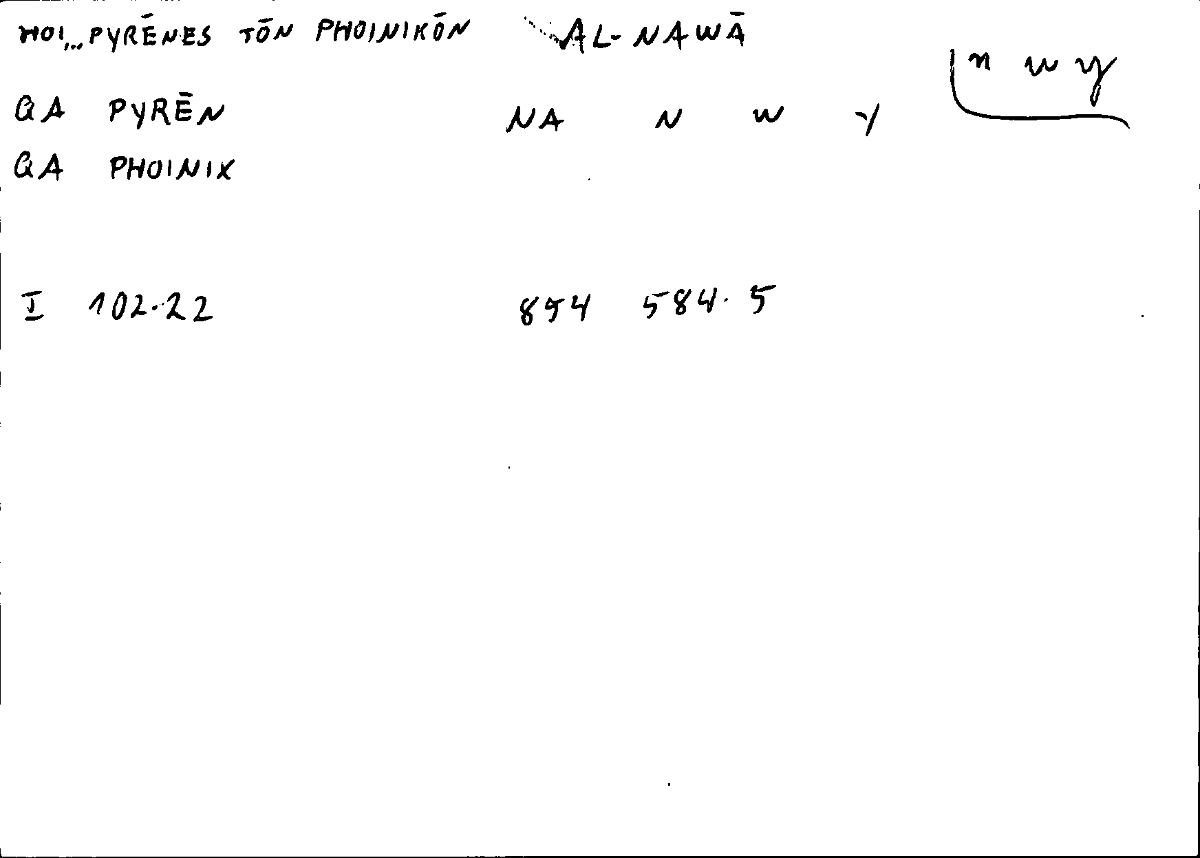 HOI... PYRĒNES TŌN PHOINIKŌN AL-NAWĀ
n w y
QA PYRĒN NA N W Y
QA PHOINIX
I 102.22 854 584.5